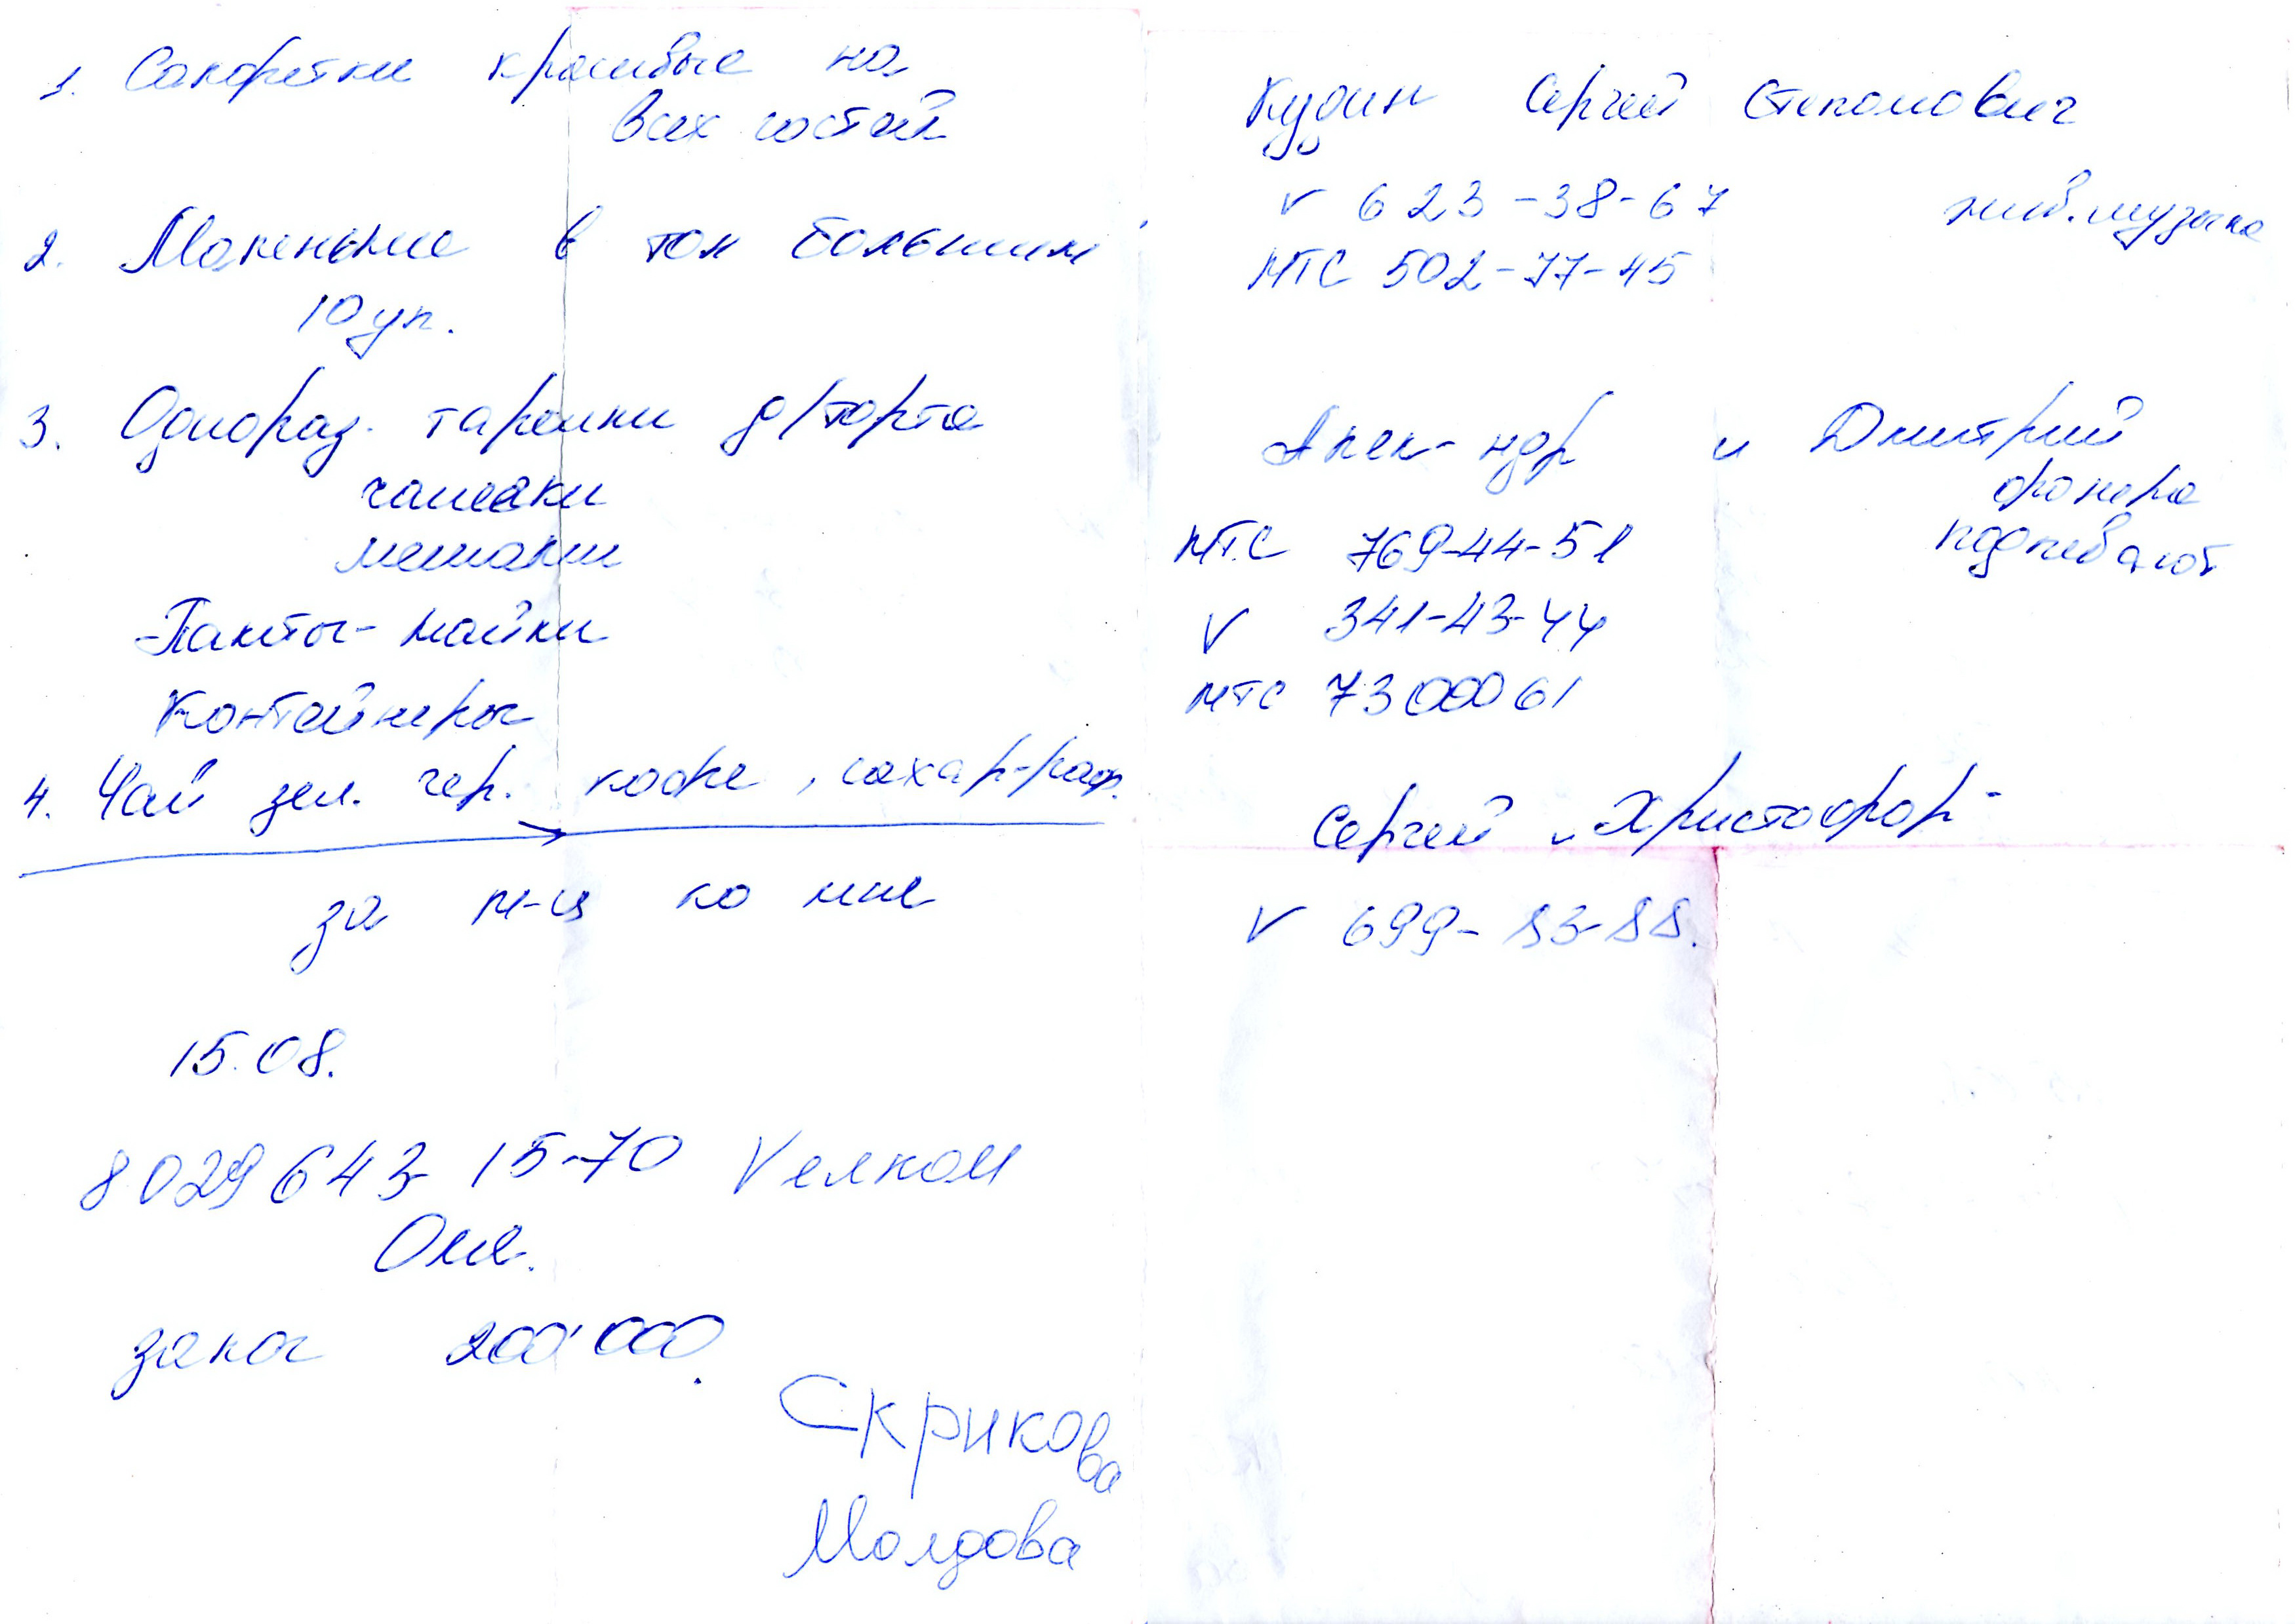 1. Салфетки красивые на
всех гостей
2. Маленькие в тон большим
10 уп.
3. Однораз. тарелки д/торта
чашки
мешалки
-Пакеты-майки
Контейнеры
4. Чай зел. чер. кофе, сахар-раф.
за м-ц ко мне
15.08.
8029 643-15-70 Vелком
Оля.
залог 200'000.
Скрикова
Молдова
Кудин Сергей Степанович
V 623-38-67 жив. музыка
МТС 502-77-45
Алек-ндр и Дмитрий
фонера
подпевают
МТС 769-44-51
V 341-43-44
МТС 7300061
Сергей "Христофор"
V 699-83-88.